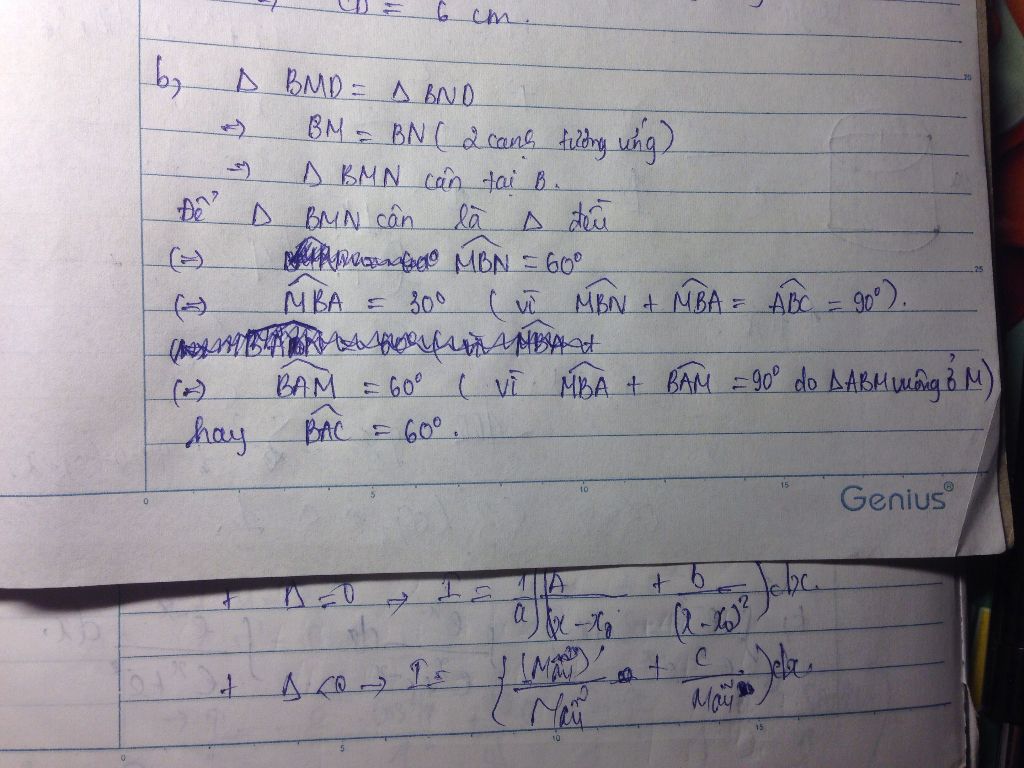 = 6 cm.
b, Δ BMD = Δ BND
=> BM = BN ( 2 cạnh tương ứng)
=> Δ BMN cân tại B.
Để Δ BMN cân là Δ đều
(=) MBN = 60°
(=) MBA = 30° ( vì MBN + MBA = ABC = 90°).
(=) BAM = 60° ( vì MBA + BAM = 90° do ΔABM vuông ở M)
hay BAC = 60°.
0 5 10 15
Genius®
20
25
+ Δ = 0 → I = 1/a ∫(A/(x-x₀) + b/(x-x₀)²)dx.
+ Δ < 0 → I = ∫((Mẫu)'/Mẫu + C/Mẫu)dx.
0 5 10 15